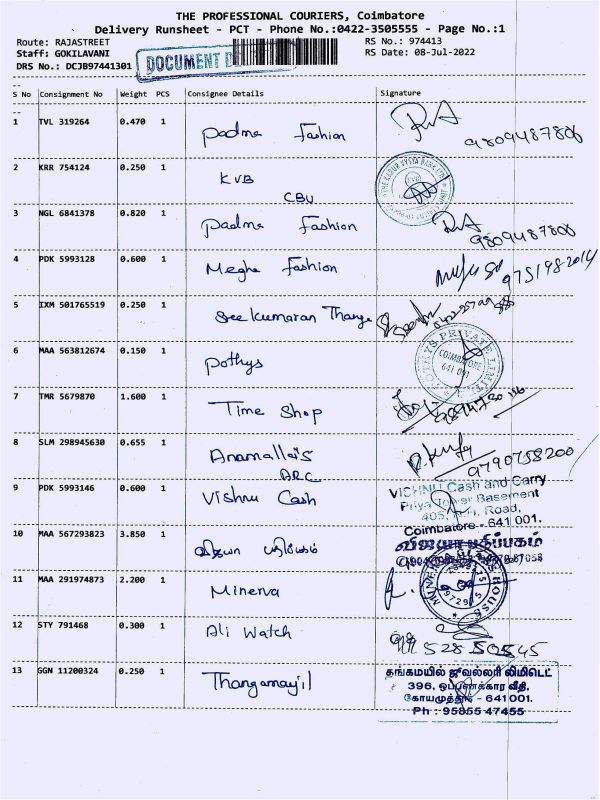 THE PROFESSIONAL COURIERS, Coimbatore
Delivery Runsheet - PCT - Phone No.:0422-3505555 - Page No.:1
Route: RAJASTREET RS No.: 974413
Staff: GOKILAVANI RS Date: 08-Jul-2022
DRS No.: DCJB97441301
DOCUMENT
S No Consignment No Weight PCS Consignee Details Signature
1 TVL 319264 0.470 1 Padma Fashion
9809487806
2 KRR 754124 0.250 1 KVB
CBU
THE KARUR VYSYA BANK LTD
KVB
3 NGL 6841378 0.820 1 Padma Fashion
9809487806
4 PDK 5993128 0.600 1 Megha Fashion
9751982014
5 IXM 501765519 0.250 1 Sree Kumaran Thanga
6 MAA 563812674 0.150 1 Pothys
POTHYS PRIVATE LIMITED
COIMBATORE
641 001
7 TMR 5679870 1.600 1 Time Shop
8 SLM 298945630 0.655 1 Anamallai's
ARC
9790758200
9 PDK 5993146 0.600 1 Vishnu Cash
VISHNU Cash and Carry
Priya Tower Basement
405, Road,
Coimbatore - 641 001.
10 MAA 567293823 3.850 1 விஜயா பதிப்பகம்
விஜயா பதிப்பகம்
11 MAA 291974873 2.200 1 Minerva
12 STY 791468 0.300 1 Ali Watch
528 50545
13 GGN 11200324 0.250 1 Thangamayil
தங்கமயில் ஜுவல்லரி லிமிடெட்
396, ஒப்பணக்கார வீதி,
கோயமுத்தூர் - 641001.
Ph : 95855 47455